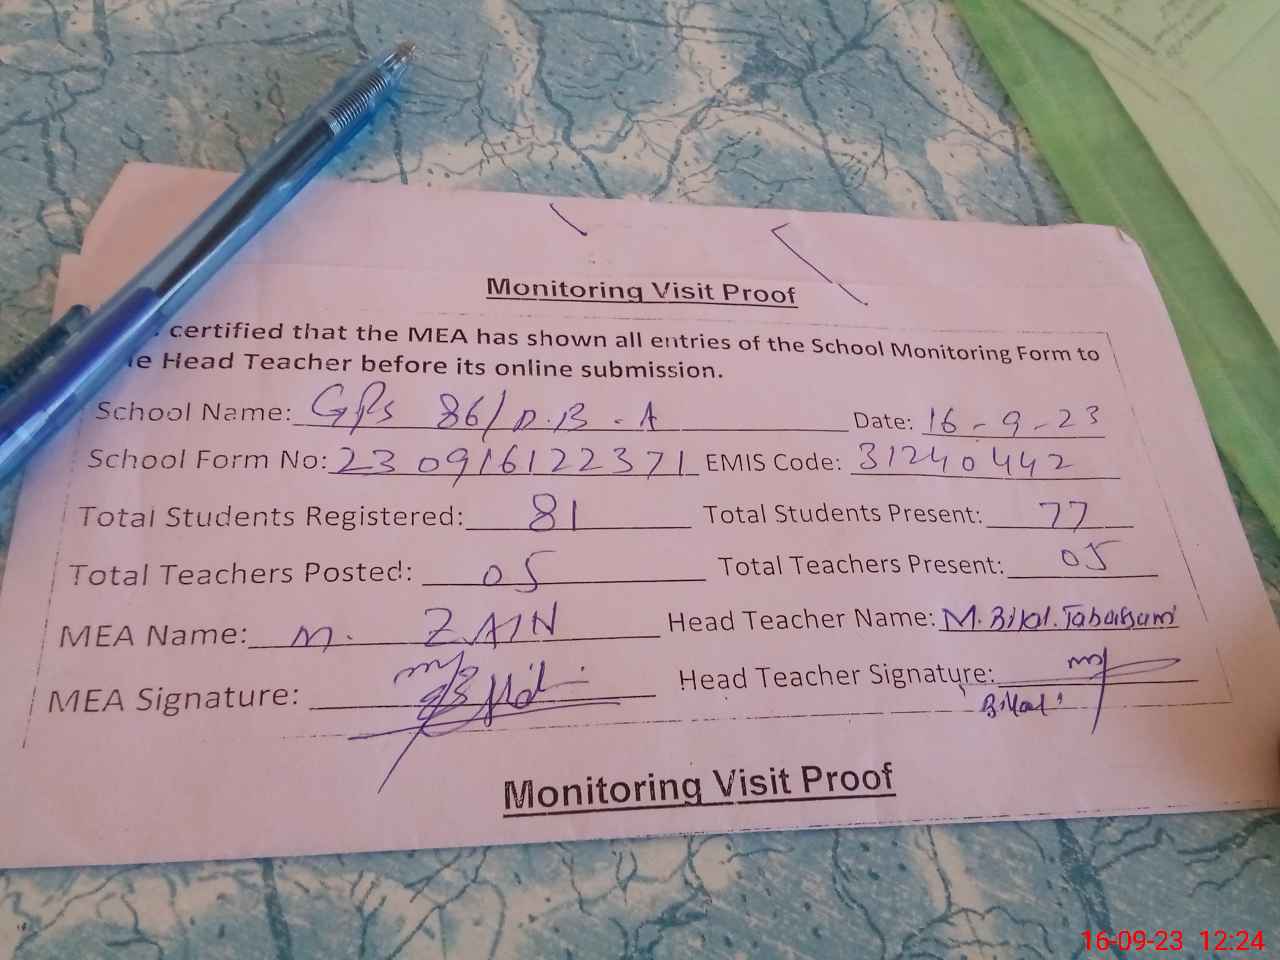 Monitoring Visit Proof
certified that the MEA has shown all entries of the School Monitoring Form to
Head Teacher before its online submission.
School Name: GPs 86/D.B - A Date: 16-9-23
School Form No: 230916122371 EMIS Code: 31240442
Total Students Registered: 81 Total Students Present: 77
Total Teachers Posted: 05 Total Teachers Present: 05
MEA Name: M. ZAIN Head Teacher Name: M. Bilal. Tabassum
MEA Signature: Head Teacher Signature:
Bilal
Monitoring Visit Proof
16-09-23 12:24